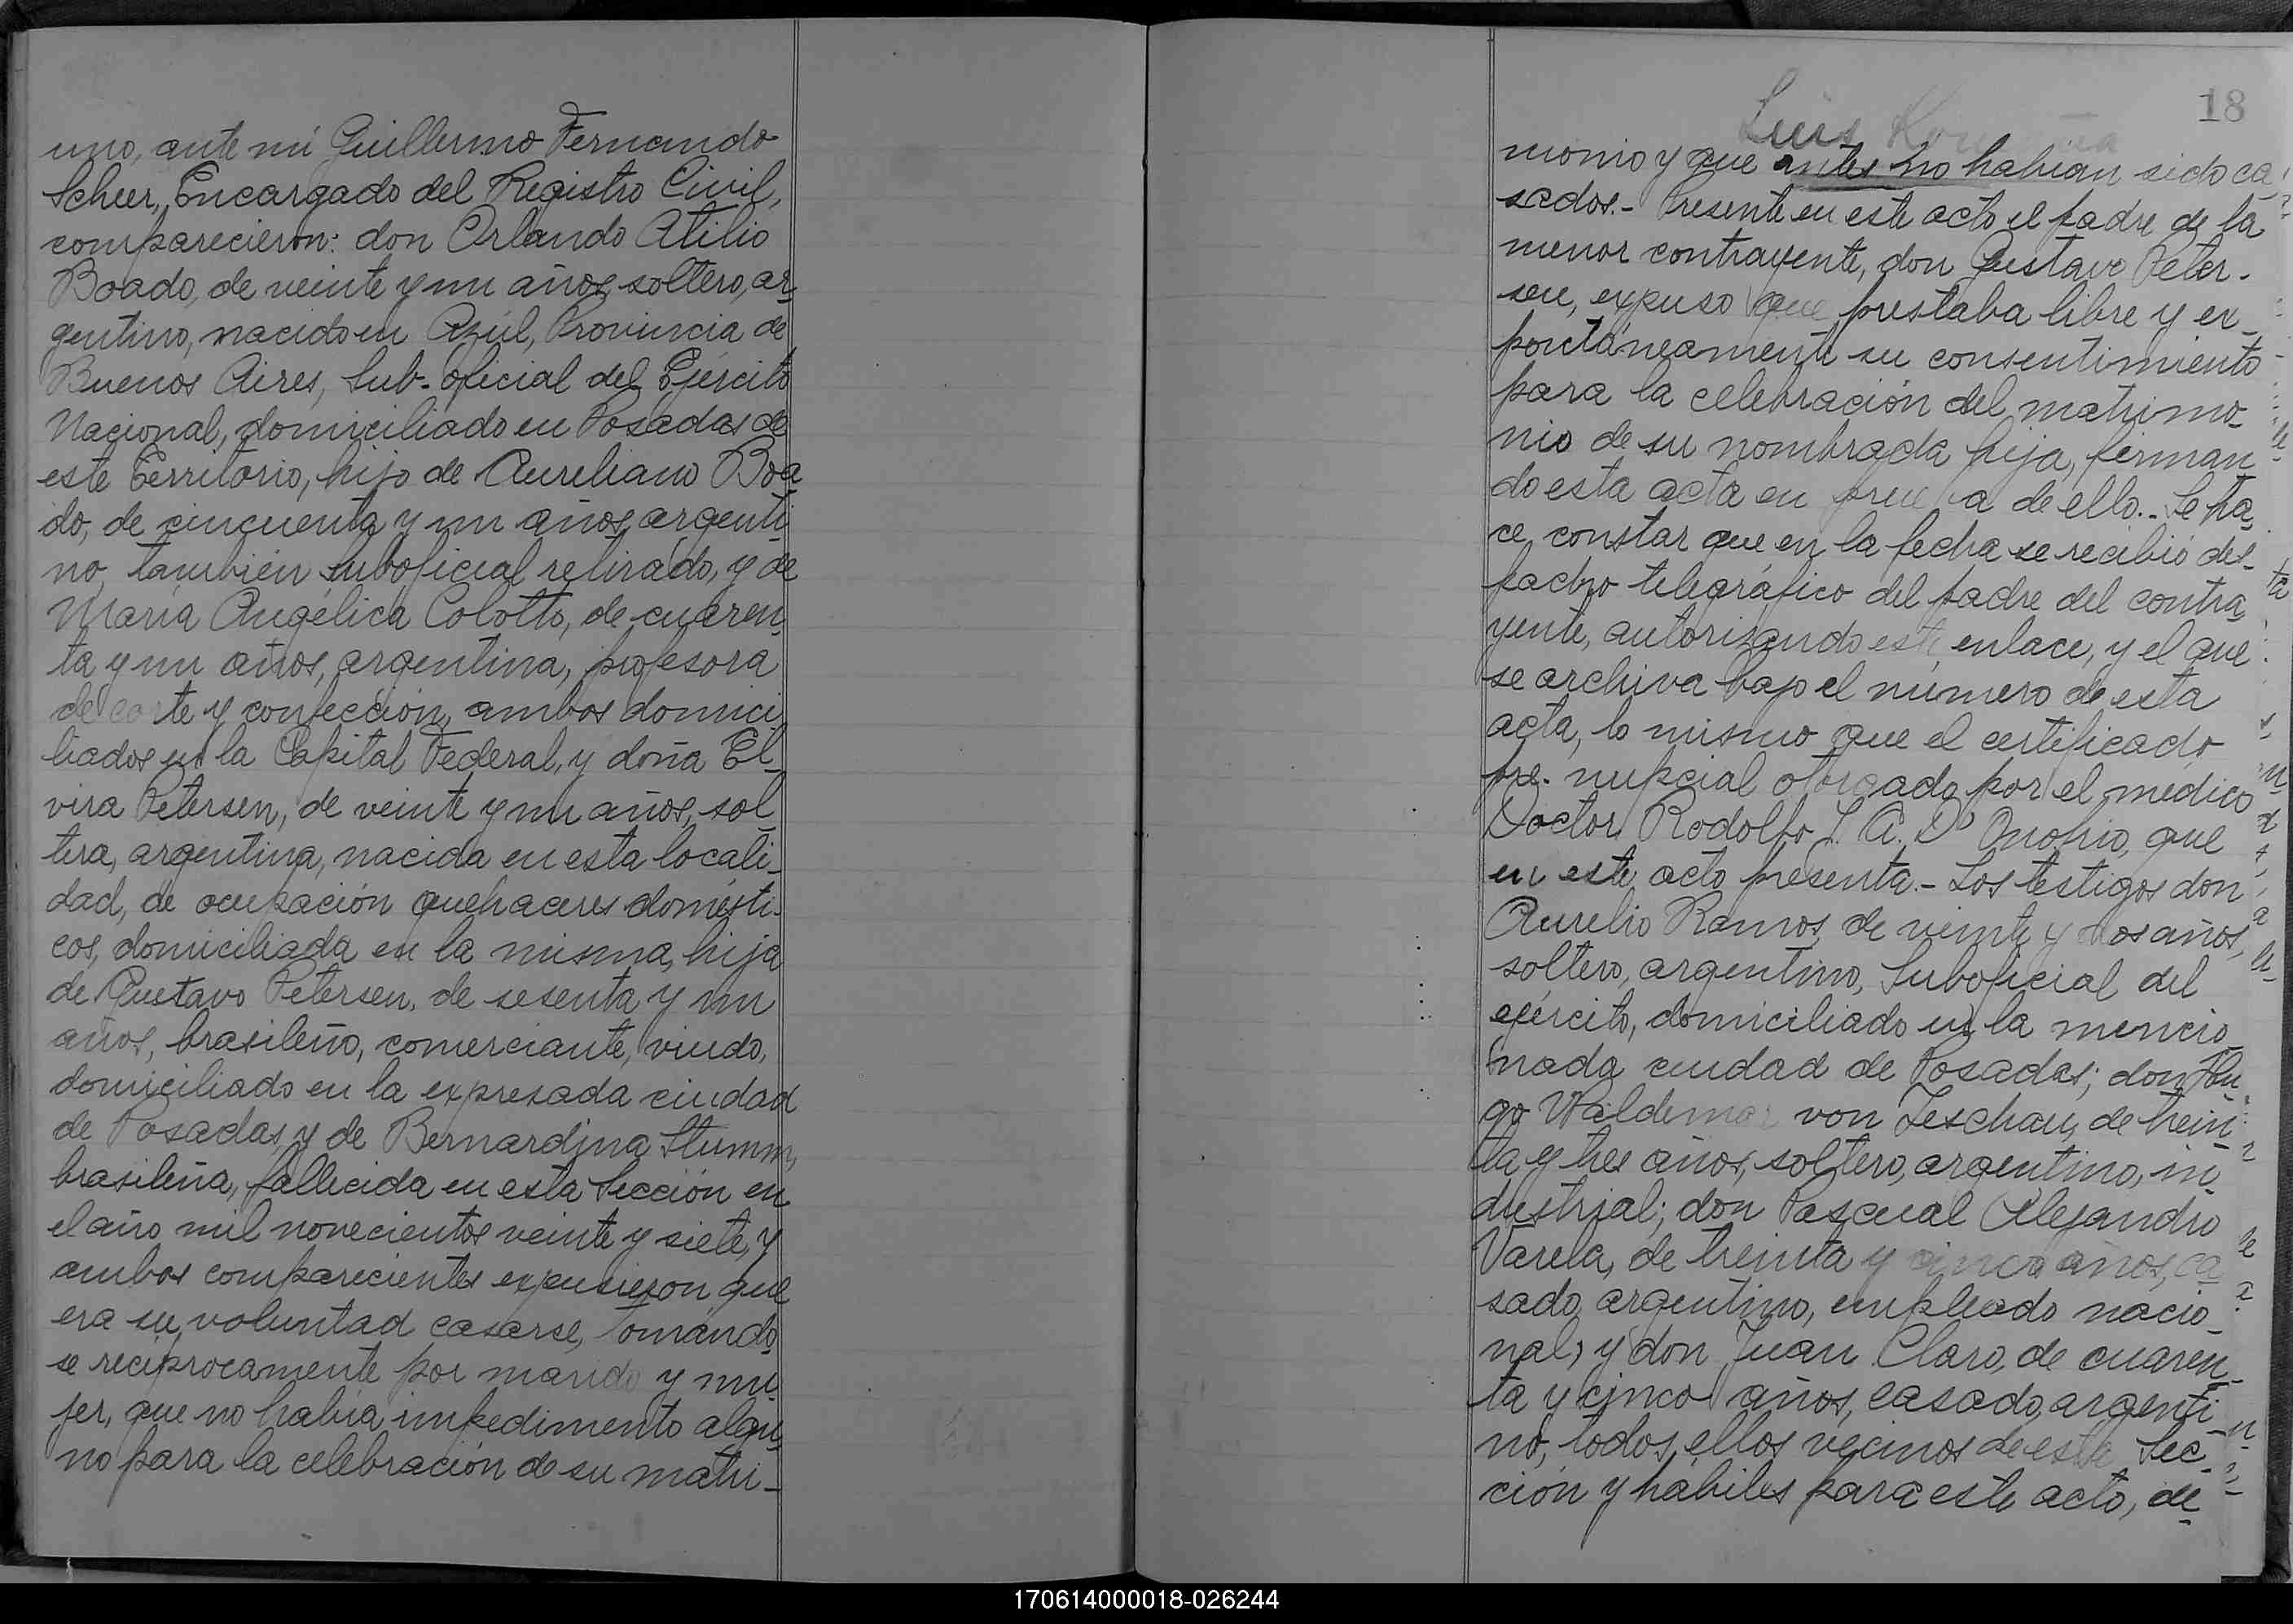 uno, ante mi Guillermo Fernando
Scheer, Encargado del Registro Civil,
comparecieron: don Orlando Atilio
Boado, de veinte y un años, soltero, ar-
gentino, nacido en Azúl, Provincia de
Buenos Aires, Sub-oficial del Ejército
Nacional, domiciliado en Posadas de
este Territorio, hijo de Aureliano Boa-
do, de cincuenta y un años, argenti-
no, también suboficial retirado, y de
María Angélica Colotto, de cuaren-
ta y un años, argentina, profesora
de corte y confección, ambos domici-
liados en la Capital Federal, y doña El-
vira Petersen, de veinte y un años, sol-
tera, argentina, nacida en esta locali-
dad, de ocupación quehaceres domésti-
cos, domiciliada en la misma, hija
de Gustavo Petersen, de sesenta y un
años, brasileño, comerciante, viudo,
domiciliado en la expresada ciudad
de Posadas, y de Bernardina Stumm,
brasileña, fallecida en esta Sección en
el año mil novecientos veinte y siete, y
ambos comparecientes expusieron que
era su voluntad casarse, tomándo-
se reciprocamente por marido y mu-
jer, que no había impedimento algu-
no para la celebración de su matri-
18
Luis
monio y que antes no habían sido ca-
sados.- Presente en este acto el padre de la
menor contrayente, don Gustavo Peter-
sen, expuso que prestaba libre y ex-
pontáneamente su consentimiento
para la celebración del matrimo-
nio de su nombrada hija, firman-
do esta acta en prueba de ello.- Se ha-
ce constar que en la fecha se recibió des-
pacho telegráfico del padre del contra-
yente, autorizando este enlace, y el que
se archiva bajo el número de esta
acta, lo mismo que el certificado
pre-nupcial otorgado por el médico
Doctor Rodolfo J. A. D'Onofrio, que
en este acto presenta.- Los testigos don
Aurelio Ramos, de veinte y dos años,
soltero, argentino, Suboficial del
ejército, domiciliado en la mencio-
nada ciudad de Posadas; don Hu-
go Waldemar von Zeschau, de trein-
ta y tres años, soltero, argentino, in-
dustrial; don Pascual Alejandro
Varela, de treinta y cinco años, ca-
sado, argentino, empleado nacio-
nal, y don Juan Claro, de cuaren-
ta y cinco años, casado, argenti-
no, todos ellos vecinos de esta Sec-
ción y hábiles para este acto, de-
170614000018-026244